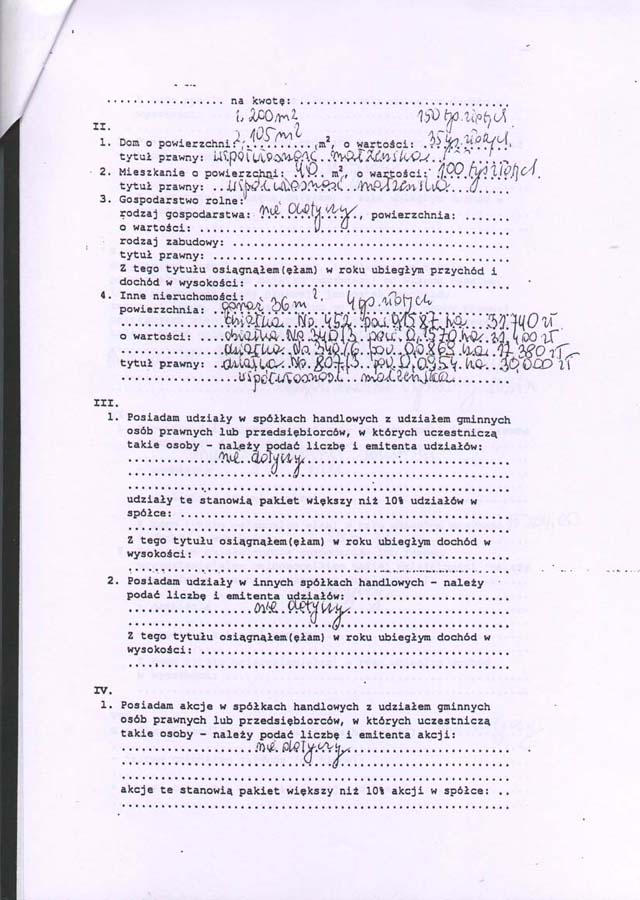 .................. na kwotę: ................................
1. 200m2 150 tys. złotych
II. 2. 105m2
1. Dom o powierzchni: ........... m², o wartości: 35 tys. złotych.
tytuł prawny: współwłasność małżeńska
2. Mieszkanie o powierzchni: 40 m², o wartości: 100 tys złotych.
tytuł prawny: współwłasność małżeńska
3. Gospodarstwo rolne:
rodzaj gospodarstwa: nie dotyczy, powierzchnia: .......
o wartości: ..........................................
rodzaj zabudowy: .....................................
tytuł prawny: ........................................
Z tego tytułu osiągnąłem(ęłam) w roku ubiegłym przychód i
dochód w wysokości: ..................................
4. Inne nieruchomości:
powierzchnia: garaż 36m². 4 tys. złotych
działka No 452 pow. 0,1587 ha 31.740 zł
o wartości: działka No 340/3 pow. 0,1570 ha. 31 400 zł
działka No 340/6 pow. 0.0869 ha. 17 380 zł
tytuł prawny: działka No. 807/3 pow. 0.0954 ha. 30.000 zł
współwłasność małżeńska
III.
1. Posiadam udziały w spółkach handlowych z udziałem gminnych
osób prawnych lub przedsiębiorców, w których uczestniczą
takie osoby – należy podać liczbę i emitenta udziałów:
nie dotyczy
udziały te stanowią pakiet większy niż 10% udziałów w
spółce: ..............................................
Z tego tytułu osiągnąłem(ęłam) w roku ubiegłym dochód w
wysokości: ...........................................
2. Posiadam udziały w innych spółkach handlowych – należy
podać liczbę i emitenta udziałów:
nie dotyczy
Z tego tytułu osiągnąłem(ęłam) w roku ubiegłym dochód w
wysokości: ...........................................
IV.
1. Posiadam akcje w spółkach handlowych z udziałem gminnych
osób prawnych lub przedsiębiorców, w których uczestniczą
takie osoby – należy podać liczbę i emitenta akcji:
nie dotyczy
akcje te stanowią pakiet większy niż 10% akcji w spółce: ..